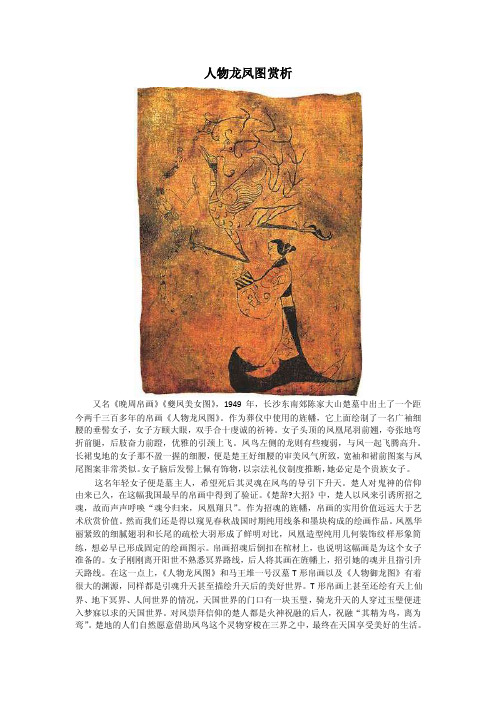 人物龙凤图赏析
又名《晚周帛画》《夔凤美女图》，1949 年，长沙东南郊陈家大山楚墓中出土了一个距
今两千三百多年的帛画《人物龙凤图》。作为葬仪中使用的旌幡，它上面绘制了一名广袖细
腰的垂髻女子，女子方颐大眼，双手合十虔诚的祈祷。女子头顶的凤凰尾羽前翘，夸张地弯
折前腿，后肢奋力前蹬，优雅的引颈上飞。凤鸟左侧的龙则有些瘦弱，与凤一起飞腾高升。
长裙曳地的女子那不盈一握的细腰，便是楚王好细腰的审美风气所致，宽袖和裙前图案与凤
尾图案非常类似。女子脑后发髻上佩有饰物，以宗法礼仪制度推断，她必定是个贵族女子。
这名年轻女子便是墓主人，希望死后其灵魂在凤鸟的导引下升天。楚人对鬼神的信仰
由来已久，在这幅我国最早的帛画中得到了验证。《楚辞?大招》中，楚人以凤来引诱所招之
魂，故而声声呼唤“魂兮归来，凤凰翔只”。作为招魂的旌幡，帛画的实用价值远远大于艺
术欣赏价值。然而我们还是得以窥见春秋战国时期纯用线条和墨块构成的绘画作品。凤凰华
丽紧致的细腻翅羽和长尾的疏松大羽形成了鲜明对比，凤凰造型纯用几何装饰纹样形象简
练，想必早已形成固定的绘画图示。帛画招魂后倒扣在棺材上，也说明这幅画是为这个女子
准备的。女子刚刚离开阳世不熟悉冥界路线，后人将其画在旌幡上，招引她的魂并且指引升
天路线。在这一点上，《人物龙凤图》和马王堆一号汉墓 T 形帛画以及《人物御龙图》有着
很大的渊源，同样都是引魂升天甚至描绘升天后的美好世界。T 形帛画上甚至还绘有天上仙
界、地下冥界、人间世界的情况，天国世界的门口有一块玉璧，骑龙升天的人穿过玉璧便进
入梦寐以求的天国世界。对凤崇拜信仰的楚人都是火神祝融的后人，祝融“其精为鸟，离为
鸾”。楚地的人们自然愿意借助凤鸟这个灵物穿梭在三界之中，最终在天国享受美好的生活。